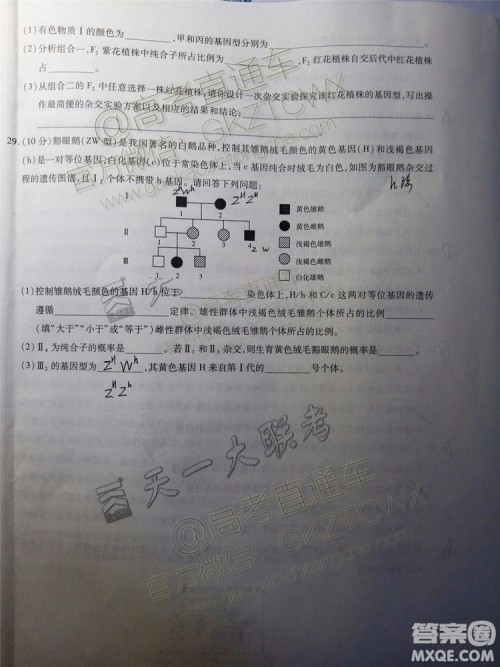 (1)有色物质Ⅰ的颜色为________,甲和丙的基因型分别为________。
(2)分析组合一,F₂紫花植株中纯合子所占比例为________,F₂红花植株自交后代中红花植株
占________。
(3)从组合二的F₂中任意选择一株红花植株,请你设计一次杂交实验探究该红花植株的基因型,写出操
作最简便的杂交实验方案以及相应的结果和结论:
29.(10分)豁眼鹅(ZW型)是我国著名的白鹅品种,控制其雏鹅绒毛颜色的黄色基因(H)和浅褐色基因
(h)是一对等位基因;白化基因(c)位于常染色体上,当c基因纯合时绒毛为白色,如图为豁眼鹅杂交过
程的传代图谱,且
个体不携带h基因。请回答下列问题:
Ⅰ 1 2
Ⅱ 1 2 3 4
Ⅲ 1 2 3
黄色雄鹅
黄色雌鹅
浅褐雌鹅
浅褐雄鹅
白化雄鹅
(1)控制雏鹅绒毛颜色的基因H/h位于________染色体上,H/h和C/c这两对等位基因的遗传
遵循________定律。雄性群体中浅褐色绒毛雏鹅个体所占的比例________
(填“大于”“小于”或“等于”)雌性群体中浅褐色绒毛雏鹅个体所占的比例。
(2)Ⅱ₂为纯合子的概率是________。若Ⅱ₁和Ⅱ₂杂交,则生育黄色绒毛豁眼鹅的概率是________。
(3)Ⅲ₂的基因型为________,其黄色基因H来自第Ⅰ代的________号个体。
天一大联考
@高考直通车
官方微信:GKZTCWX
答案圈
MXQE.COM